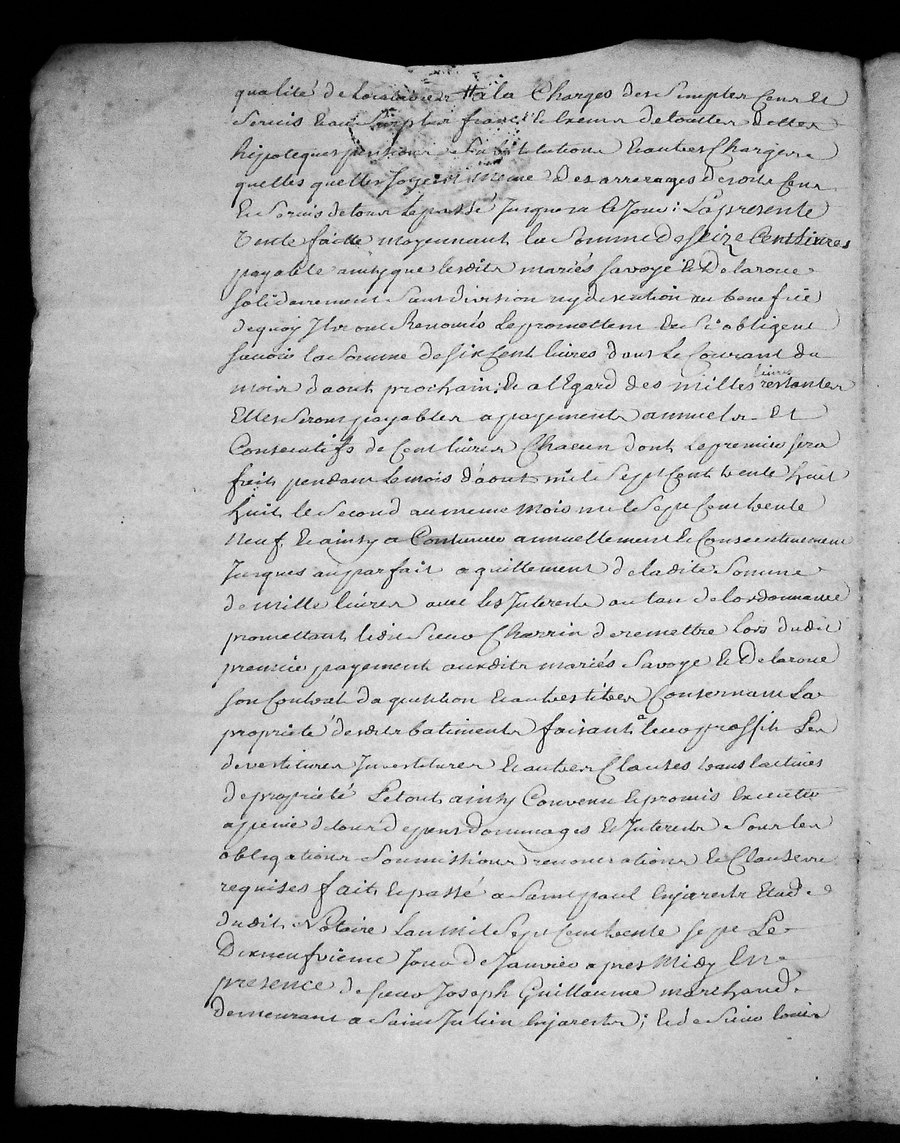 qualité de locataires # a la Charges des Simples Cens Et
Servis Et au Surplus franc Et Exems de touttes dettes
hipoteques pensions Substitutions Et autres Charges
quelles quelles Soyent mesme des arrerages desdits Cens
Et Servis de tout le passé Jusques a Ce Jour: La presente
Vente faitte moyennant la Somme de Seize Cent Livres
payable ainsy que lesdits mariés Savoye Et Delaroue
Solidairement Sans division ny discution au benefice
de quoy Ils ont Renoncés Le promettent Et S'obligent
Savoir la Somme de Six Cent livres dans Le Courant du
mois daout prochain: Et a lEgard des milles livres restantes
Elles Seront payables a payements annuels Et
Consecutifs de Cent livres Chacun dont Le premier sera
fait pendant Le mois d'aout mil Sept Cent trente huit
huit le Second au meme mois mil Sept Cent trente
Neuf, Et ainsy a Continuer annuellement Et Consecutivement
Jusques au parfait aquittement de ladite Somme
de mille livres avec Les Interests au taux de lordonnance
promettant ledit Sieur Charrin de remettre Lors dudit
premier payement auxdits mariés Savoye Et Delaroue
Son Contrat daquisition Et autres titres Consernant La
propriété desdits batiments faisant a leur proffit Les
devestitures Investitures Et autres Clauses translatives
de propriété Le tout ainsy Convenu Et promis Executer
a peine de tous depens Dommages Et Interests Sous les
obligations Soumissions renonciations Et Clauses
requises fait Et passé a Saint paul En jarests Etude
dudit Notaire Lan mil Sept Cent trente Sept Le
Dixneufvieme Jour de Janvier apres Midy En
presence de Sieur Joseph Guillaume marchand
demeurant a Saint Julien En jarests; Et de Sieur Louis